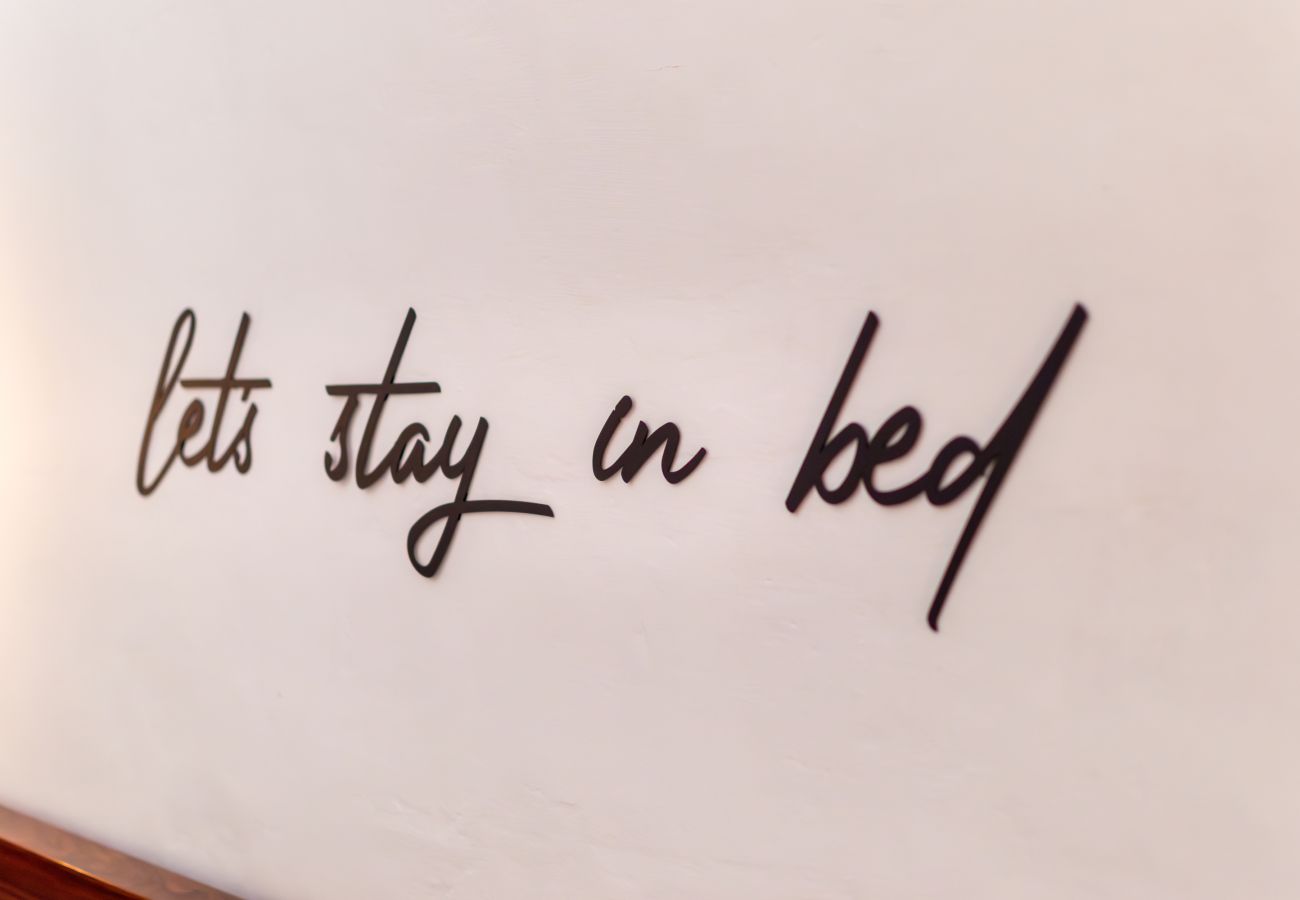 let's stay in bed